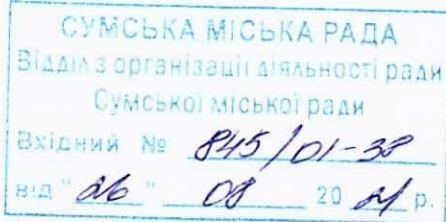 СУМСЬКА МІСЬКА РАДА
Відділ з організації діяльності ради
Сумської міської ради
Вхідний № 845/01-38
від "26" 08 2021 р.